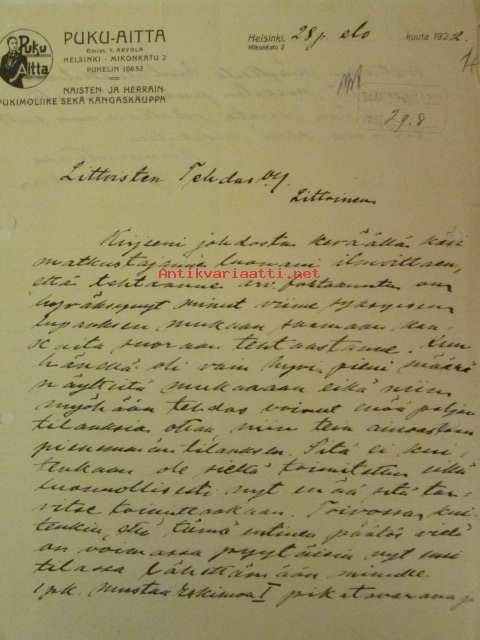 Puku
Aitta
PUKU-AITTA
Omist. Y. ARVOLA
HELSINKI - MIKONKATU 2
PUHELIN 10652
NAISTEN- JA HERRAIN-
PUKIMOLIIKE SEKÄ KANGASKAUPPA
Helsinki, 28 p. elo kuuta 1922.
Mikonkatu 2
29.8
Littoisten Tehdas O.Y.
Littoinen
Kirjeeni johdosta keväällä kävi
matkustajanne luonani ilmoittaen,
Antikvariaatti.net
että tehtaanne on
hyväksynyt minut viime syksyisen
lupauksen mukaan saamaan kan-
kaita suoraan tehtaastanne. Kun
hänellä oli vain hyvin pieni määrä
näytteitä mukanaan eikä niin
myöhään tehdas voinut enää paljon
tilauksia ottaa niin tein ainoastaan
pienemmän tilauksen. Sitä ei kui-
tenkaan ole sieltä toimitettu eikä
luonnollisesti nyt enää sitä tar-
vitse toimittaakaan. Toivossa kui-
tenkin, että tämä entinen päätös vielä
on voimassa pyytäisin nyt ensi
tilassa lähettämään minulle.
1 pk. mustaa Eskimoa I